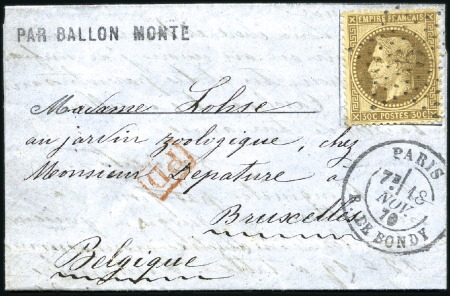 PAR BALLON MONTÉ
EMPIRE FRANÇAIS
30C POSTES 30C
Madame Lohse
au jardin zoologique, chez
Monsieur Depature à
Bruxelles
Belgique
PD
PARIS
7E 18
NOV.
70
R. DE BONDY